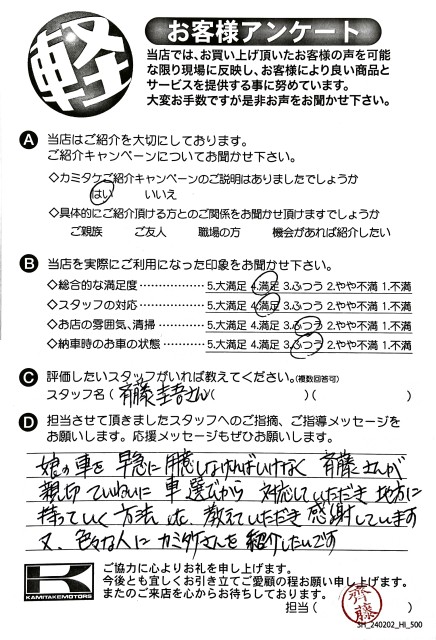 軽
お客様アンケート
当店では、お買い上げ頂いたお客様の声を可能
な限り現場に反映し、お客様により良い商品と
サービスを提供する事に努めています。
大変お手数ですが是非お声をお聞かせ下さい。
A 当店はご紹介を大切にしております。
ご紹介キャンペーンについてお聞かせ下さい。
◇カミタケご紹介キャンペーンのご説明はありましたでしょうか
はい いいえ
◇具体的にご紹介頂ける方とのご関係をお聞かせ頂けますでしょうか
ご親族 ご友人 職場の方 機会があれば紹介したい
B 当店を実際にご利用になった印象をお聞かせ下さい。
◇総合的な満足度………………5.大満足 4.満足 3.ふつう 2.やや不満 1.不満
◇スタッフの対応………………5.大満足 4.満足 3.ふつう 2.やや不満 1.不満
◇お店の雰囲気、清掃…………5.大満足 4.満足 3.ふつう 2.やや不満 1.不満
◇納車時のお車の状態…………5.大満足 4.満足 3.ふつう 2.やや不満 1.不満
C 評価したいスタッフがいれば教えてください。(複数回答可)
スタッフ名(斉藤圭吾さん)( )( )
D 担当させて頂きましたスタッフへのご指摘、ご指導メッセージを
お願いします。応援メッセージもぜひお願いします。
娘の車を早急に用意しなければいけなく 斉藤さんが
親切ていねいに 車選びから 対応していただき 地方に
持っていく方法 etc. 教えていただき 感謝しています
又、色々な人に カミタケさんを 紹介したいです
K
KAMITAKEMOTORS
ご協力に心よりお礼を申し上げます。
今後とも宜しくお引き立てご愛顧の程お願い申し上げます。
またのご来店を心からお待ちしております。
担当( 齊藤 )
SH_240202_HI_500